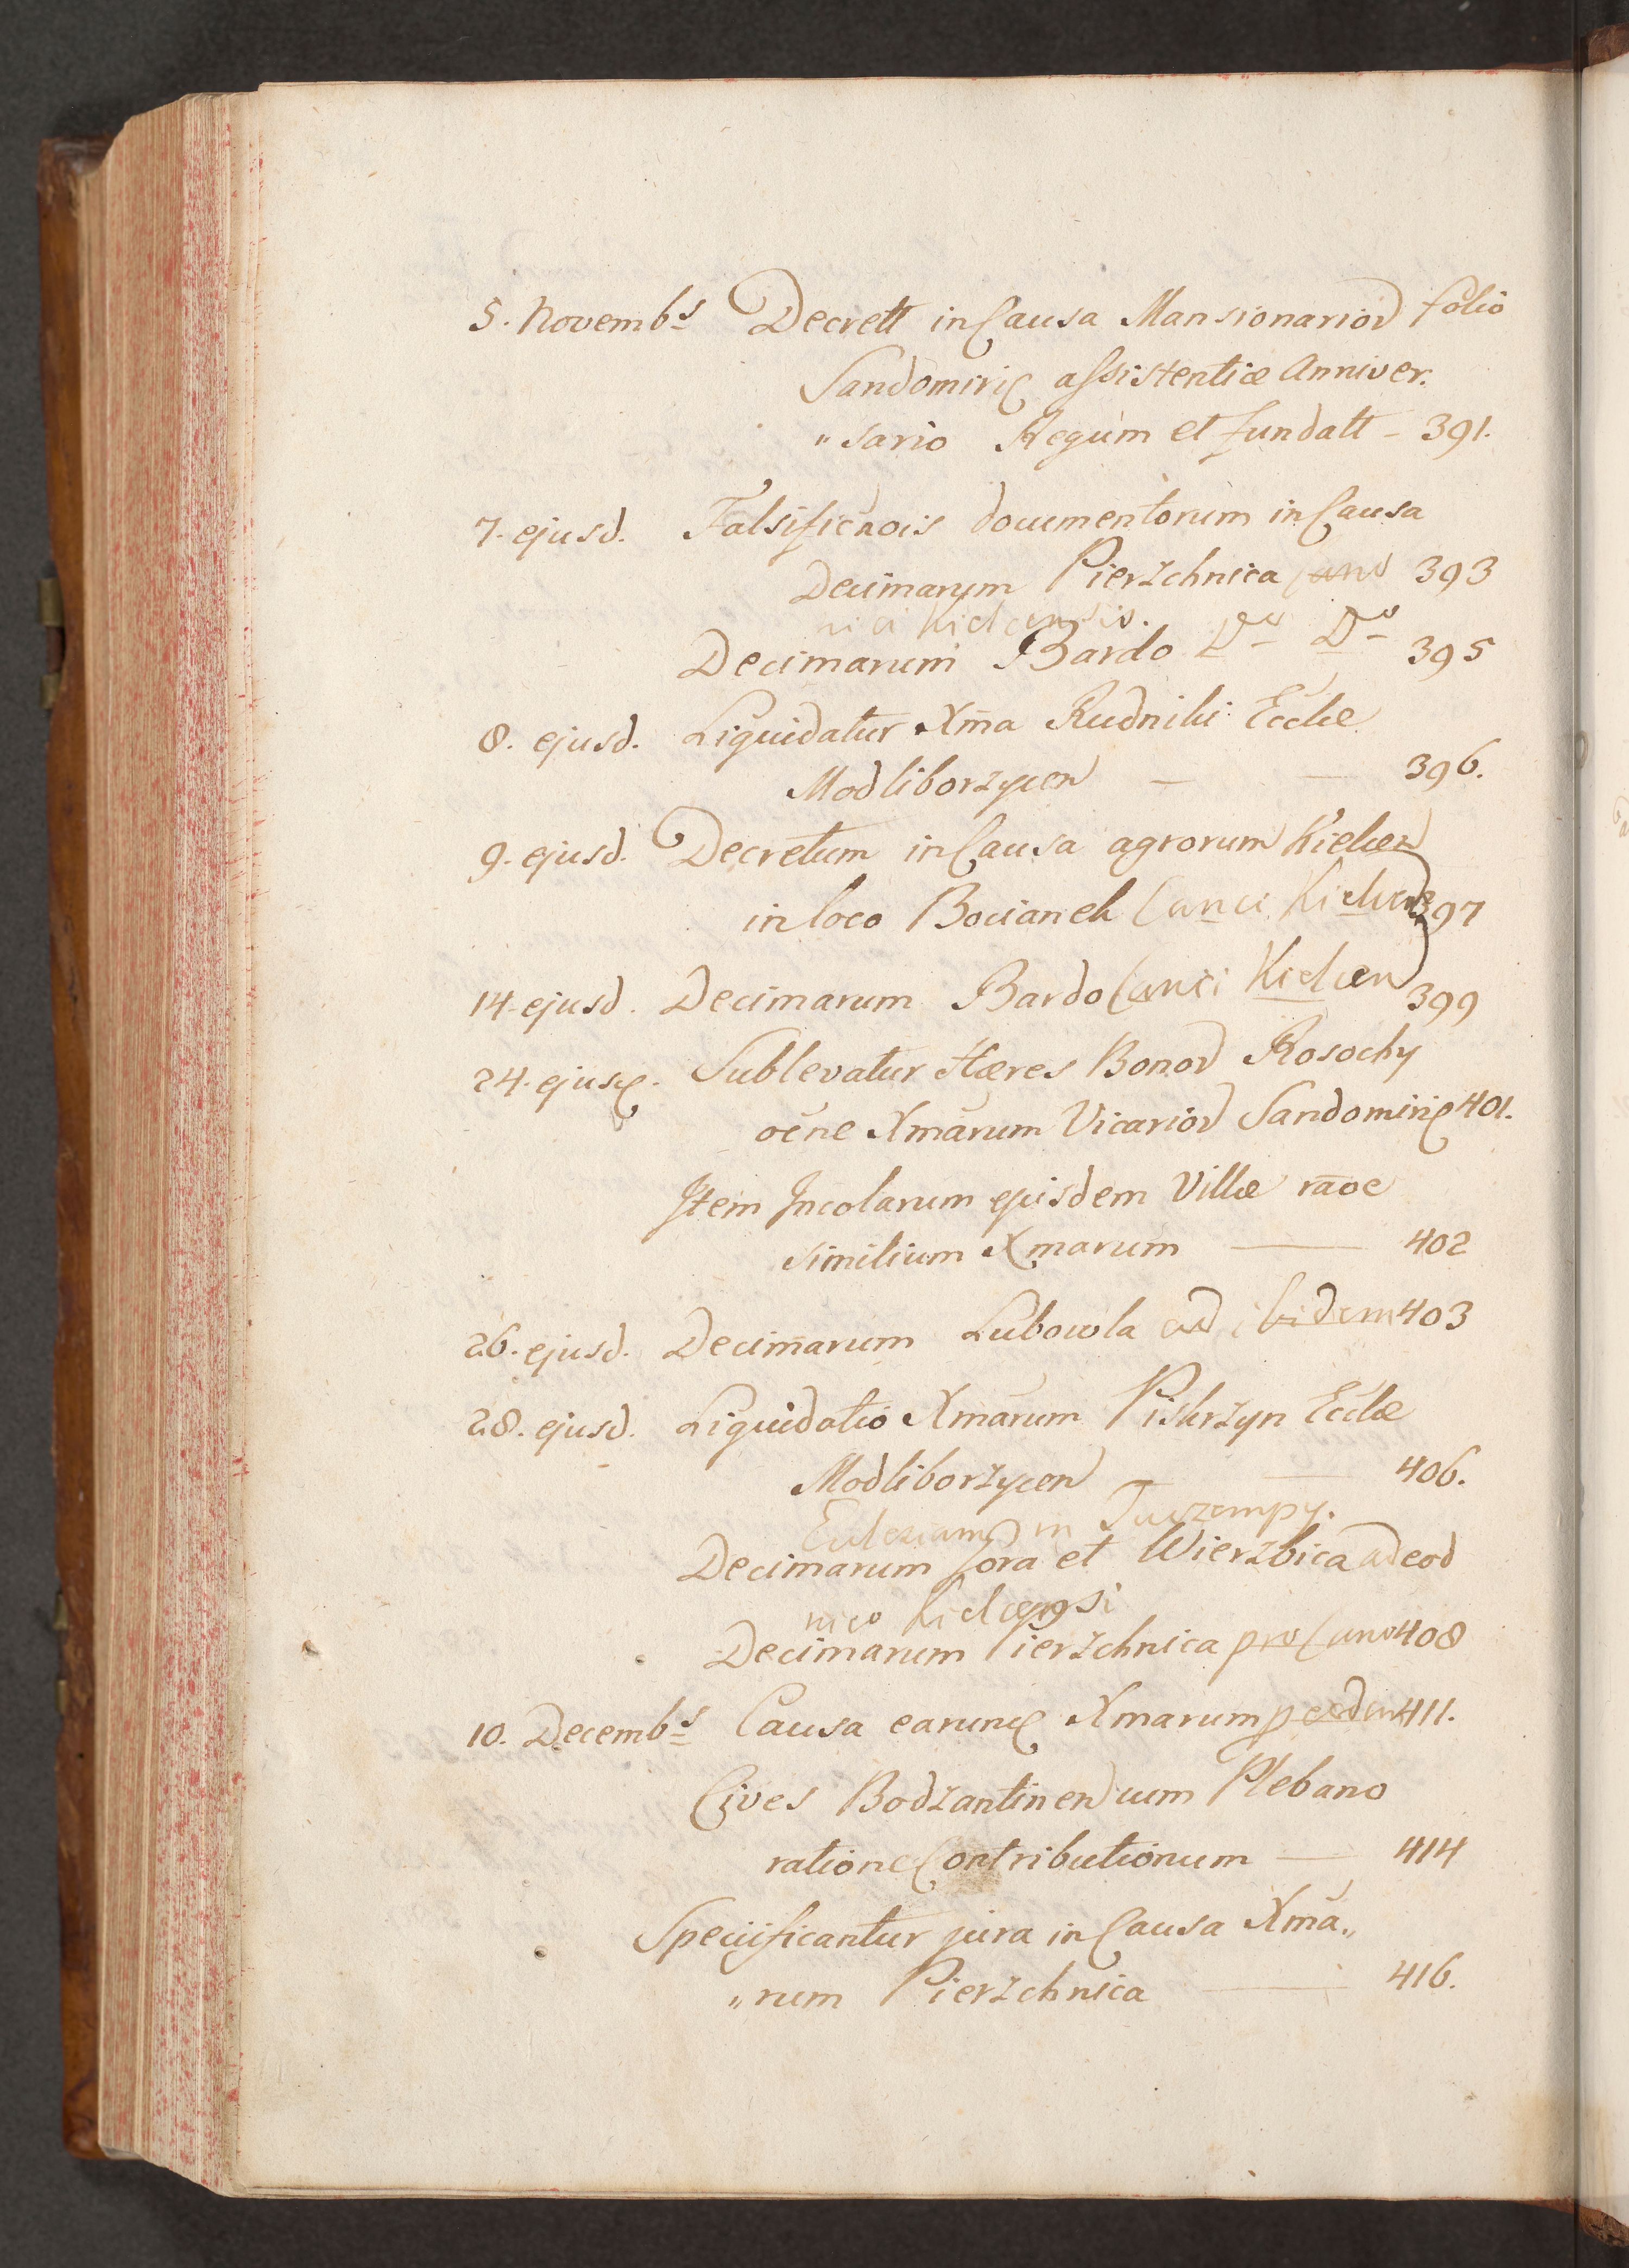 5. Novemb<sup>s</sup> Decrett in Causa Mansionarior folio
Sandomirić assistentiæ Anniver.
„sario Regum et fundatt – 391.
7. ejusd. Falsificãois documentorum in Causa
Decimarum Pierzchnica Cano 393
nici Kielcensis.
Decimarum Bardo D<sup>o</sup> D<sup>o</sup> 395
8. ejusd. Liquidatur Xm̃a Rudniki Eccłæ
Modliborzycen — — 396.
9. ejusd. Decretum in Causa agrorum Kielcen
in loco Bocianek Canci Kielcen 397
14. ejusd. Decimarum Bardo Canci Kielcen 399
24. ejusd. Sublevatur Hæres Bonor Rosochy
Xmãrum Vicarior Sandomirić 401.
Item Incolarum ejusdem Villæ rãoe
similium Xmarum — 402
26. ejusd. Decimarum Lubowla ad ibidem 403
28. ejusd. Liquidatio Xmãrum Piskrzyn Eccłæ
Modliborzycen — — 406.
Eclesiam in Tuczempy.
Decimarum Sora et Wierzbica ad eod
nico Kielcensi
Decimarum Pierzchnica pro Cano 408
10. Decemb<sup>s</sup> Causa earund Xmarum p eodem 411.
Cives Bodzantinen cum Plebano
ratione Contributionum — 414
Specificantur jura in Causa Xmã„
„rum Pierzchnica — 416.